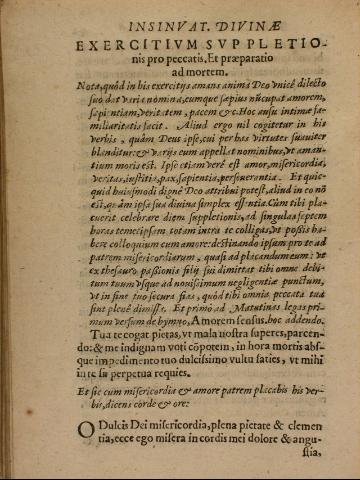 INSINVAT. DIVINÆ
EXERCITIVM SVPPLETIO-
nis pro peccatis, Et præparatio
ad mortem.
Nota, quòd in his exercitijs amans anima Deo vnicè dilecto
suo dat varia nomina, eumque sæpius nũcupat amorem,
sapientiam, veritatem, pacem &c. Hoc ausu intimæ fa-
miliaritatis facit. Aliud ergo nil cogitetur in his
verbis, quàm Deus ipse, cui per has virtutes suauiter
blanditur: & varijs eum appellat nominibus, vt aman-
tium moris est. Ipse etiam verè est amor, misericordia,
veritas, iustitia, pax, sapientia, perseuerantia. Et quic-
quid huiusmodi dignè Deo attribui potest, aliud in eo nõ
est, quàm ipsa sua diuina simplex essentia. Cùm tibi pla-
cuerit celebrare diem suppletionis, ad singulas septem
horas temetipsam totam intra te colligas, vt possis ha-
bere colloquium cum amore: destinando ipsum pro te ad
patrem misericordiarum, quasi ad placandum eum: vt
ex thesauro passionis filij sui dimittat tibi omne debi-
tum tuum vsque ad nouissimum negligentiæ punctum,
vt in fine tuo secura fias, quòd tibi omnia peccata tua
sint plenè dimissa. Et primò ad Matutinas legas pri-
mum versum de hymno, Amorem sensus. hoc addendo.
Tua te cogat pietas, vt mala nostra superes, parcen-
do: & me indignam voti cõpotem, in hora mortis abs-
que impedimento tuo dulcissimo vultu saties, vt mihi
in te sit perpetua requies.
Et sic cum misericordia & amore patrem placabis his ver-
bis, dicens corde & ore:
O Dulcis Dei misericordia, plena pietate & clemen
tia, ecce ego misera in cordis mei dolore & angu-
stia,